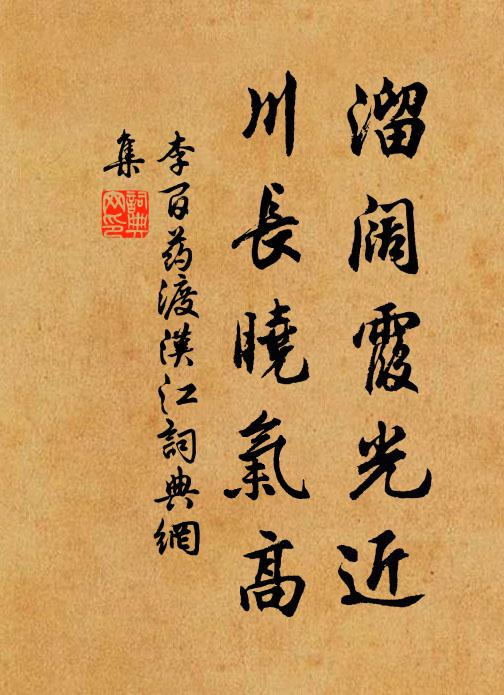 溜阔霞光近
川長曉氣高
李百药渡漢江詞典網
集
詞典
网印